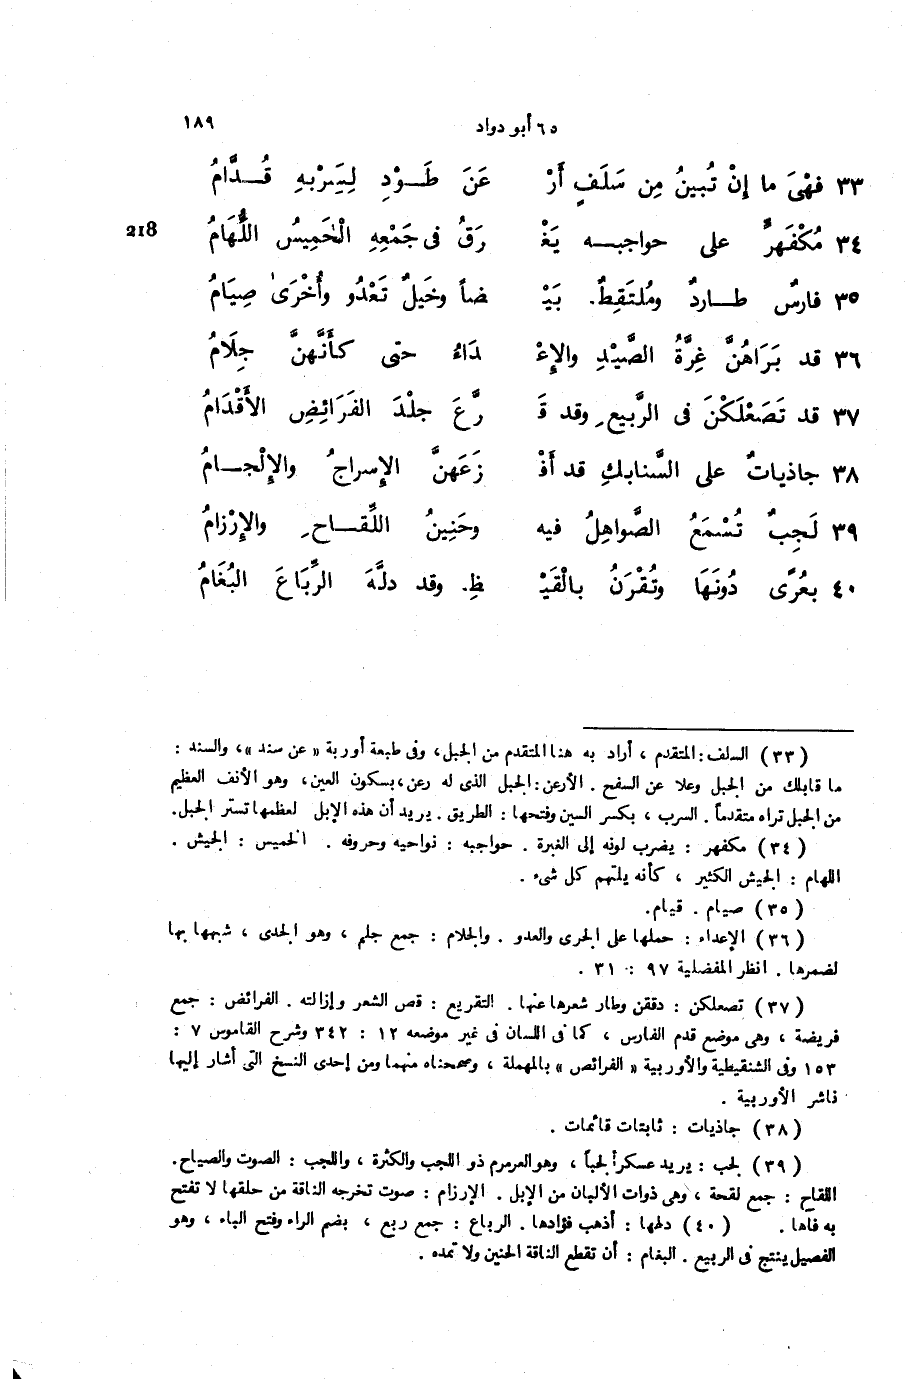 ٦٥ أبو دواد ١٨٩
٣٣ فهْىَ ما إنْ تُبينُ مِن سَلَفٍ أَرْ عَنَ طَــوْدٍ لِسِرْبِهِ قُــدَّامُ
٣٤ مُكْفَهِرٌّ على حواجبــه يَغْ رَقُ فى جَمْعِهِ الْخَمِيسُ اللُّهَامُ 218
٣٥ فارسٌ طــاردٌ ومُلتَقِطٌ. بَيْ ضاً وخَيلٌ تَعْدُو وأُخْرَىٰ صِيَامُ
٣٦ قد بَرَاهُنَّ غِرَّةُ الصَّيْدِ والإعْ دَاءُ حتى كأَنَّهنَّ جِلَامُ
٣٧ قد تَصَعْلَكْنَ فى الرَّبيعِ وقد قَ رَّعَ جلْدَ الفَرَائِضِ الأَقْدَامُ
٣٨ جاذياتٌ على السَّنابكِ قد أَفْ زَعَهنَّ الإسراجُ والإلْجــامُ
٣٩ لَجِبٌ تُسْمَعُ الصَّواهِلُ فيه وحَنِينُ اللِّقــاحِ والإرْزامُ
٤٠ بعُرًى دُونَهَا وتُقْرَنُ بالْقَيْ ظِ. وقد دلَّهَ الرِّبَاعَ البُغَامُ
(٣٣) السلف: المتقدم ، أراد به هنا المتقدم من الجبل، وفى طبعة أوربة «عن سند»، والسند :
ما قابلك من الجبل وعلا عن السفح . الأرعن: الجبل الذى له رعن، بسكون العين، وهو الأنف العظيم
من الجبل تراه متقدماً . السرب ، بكسر السين وفتحها : الطريق . يريد أن هذه الإبل لعظمها تستر الجبل.
(٣٤) مكفهر : يضرب لونه إلى الغبرة . حواجبه : نواحيه وحروفه . الخميس : الجيش .
اللهام : الجيش الكثير ، كأنه يلتهم كل شىء .
(٣٥) صيام . قيام.
(٣٦) الإعداء : حملها على الجرى والعدو . والجلام : جمع جلم ، وهو الجدى ، شبهها بها
لضمرها . انظر المفضلية ٩٧ : ٣١ .
(٣٧) تصعلكن : دققن وطار شعرها عنها . التقريع : قص الشعر وإزالته . الفرائض : جمع
فريضة ، وهى موضع قدم الفارس ، كما فى اللسان فى غير موضعه ١٢ : ٣٤٢ وشرح القاموس ٧ :
١٥٣ وفى الشنقيطية والأوربية «الفرائص» بالمهملة ، وصححناه منهما ومن إحدى النسخ التى أشار إليها
ناشر الأوربية .
(٣٨) جاذيات : ثابتات قائمات .
(٣٩) لجب : يريد عسكراً لجباً ، وهو العرمرم ذو اللجب والكثرة ، واللجب : الصوت والصياح.
اللقاح : جمع لقحة ، وهى ذوات الألبان من الإبل . الإرزام : صوت تخرجه الناقة من حلقها لا تفتح
به فاها . (٤٠) دلهها : أذهب فؤادها . الرباع : جمع ربع ، بضم الراء وفتح الباء ، وهو
الفصيل ينتج فى الربيع . البغام : أن تقطع الناقة الحنين ولا تمده .